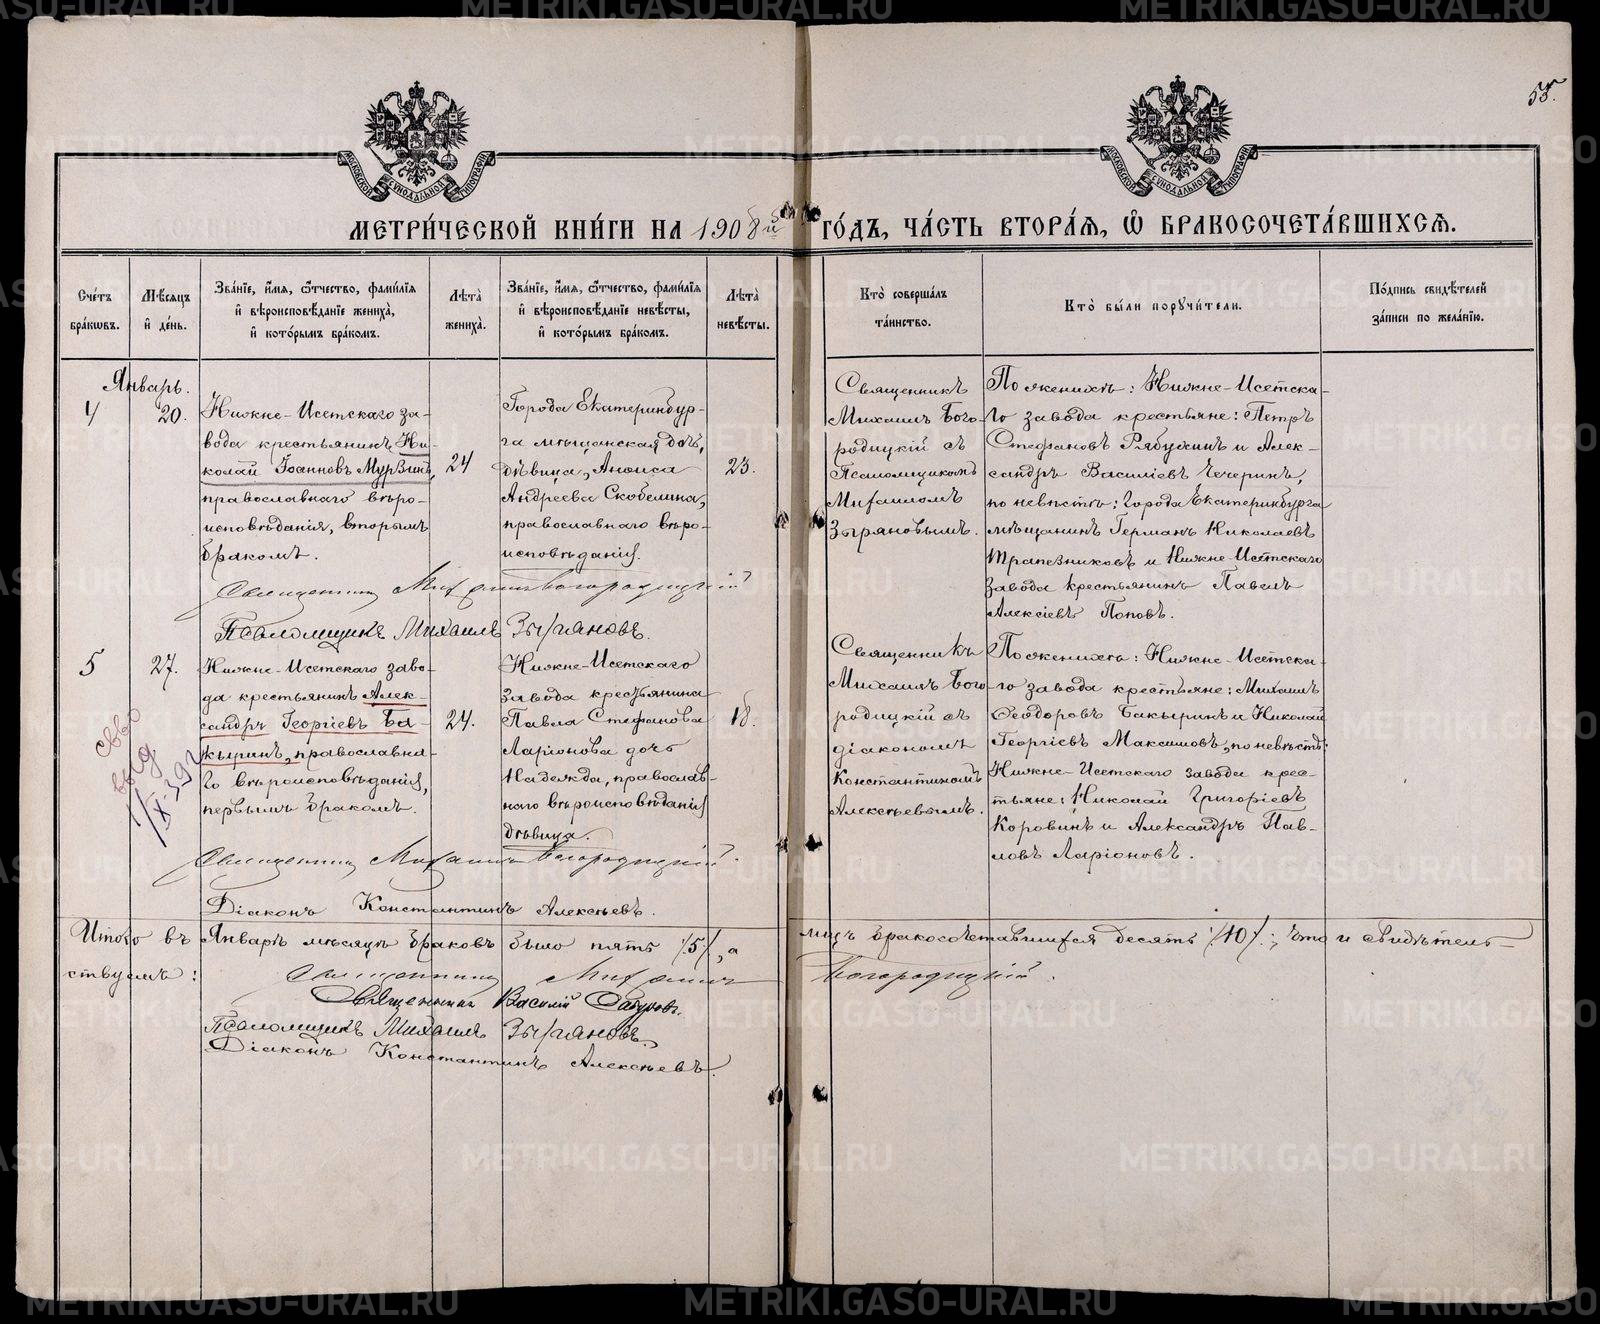 58.
МОСКОВСКОЙ СѴНОДАЛЬНОЙ ТИПОГРАФІИ
МОСКОВСКОЙ СѴНОДАЛЬНОЙ ТИПОГРАФІИ
МЕТРИ́ЧЕСКОЙ КНИ́ГИ НА 1908й ГО́ДЪ, ЧА́СТЬ ВТОРА́Я, Ѡ БРАКОСОЧЕТА́ВШИХСЯ.
Сче́тъ
бра́ковъ.
Мѣ́сяцъ
и де́нь.
Зва́нїе, и́мя, ѻ́тчество, фами́лїя
и вѣроисповѣ́данїе жениха̀,
и кото́рымъ бра́комъ.
Лѣта̀
жениха̀.
Зва́нїе, и́мя, ѻ́тчество, фами́лїя
и вѣроисповѣ́данїе невѣ́сты,
и кото́рымъ бра́комъ.
Лѣта̀
невѣ́сты.
Кто̀ соверша́лъ
та́инство.
Кто̀ бы́ли поручи́тели.
По́дпись свидѣ́телей
за́писи по жела́нїю.
Январь.
4
20.
Нижне-Исетскаго за-
вода крестьянинъ Ни-
колай Іоанновъ Мурзинъ,
православнаго вѣро-
исповѣданія, вторымъ
бракомъ.
24
Города Екатеринбур-
га мѣщанская дочь,
дѣвица, Анѳиса
Андреева Скобелина,
православнаго вѣро-
исповѣданія.
23.
Священникъ
Михаилъ Бого-
родицкій съ
Псаломщикомъ
Михаиломъ
Зыряновымъ.
По женихѣ: Нижне-Исетска-
го завода крестьяне: Петръ
Стефановъ Рябухинъ и Алек-
сандръ Василіевъ Чечеринъ,
по невѣстѣ: Города Екатеринбурга
мѣщанинъ Германъ Николаевъ
Трапезниковъ и Нижне-Исетскаго
завода крестьянинъ Павелъ
Алексіевъ Поповъ.
Священникъ Михаилъ Богородицкій
Псаломщикъ Михаилъ Зыряновъ.
5
27.
Нижне-Исетскаго заво-
да крестьянинъ Алек-
сандръ Георгіевъ Ба-
кыринъ, православна-
го вѣроисповѣданія,
первымъ бракомъ.
24.
Нижне-Исетскаго
завода крестьянина
Павла Стефанова
Ларіонова дочь
Надежда, православ-
наго вѣроисповѣданія
дѣвица.
18.
Священникъ
Михаилъ Бого-
родицкій съ
діакономъ
Константиномъ
Алексѣевымъ.
По женихѣ: Нижне-Исетска-
го завода крестьяне: Михаилъ
Ѳеодоровъ Бакыринъ и Николай
Георгіевъ Максимовъ, по невѣстѣ:
Нижне-Исетскаго завода крес-
тьяне: Николай Григоріевъ
Коровинъ и Александръ Пав-
ловъ Ларіоновъ.
Священникъ Михаилъ Богородицкій.
Діаконъ Константинъ Алексѣевъ.
Итого въ Январѣ мѣсяцѣ браковъ было пять /5/, а лицъ бракосочетавшихся десять /10/.; что и свидѣтель-
ствуемъ:
Священникъ Михаилъ Богородицкій.
Священникъ Василій
Псаломщикъ Михаилъ Зыряновъ.
Діаконъ Константинъ Алексѣевъ.
METRIKI.GASO-URAL.RU